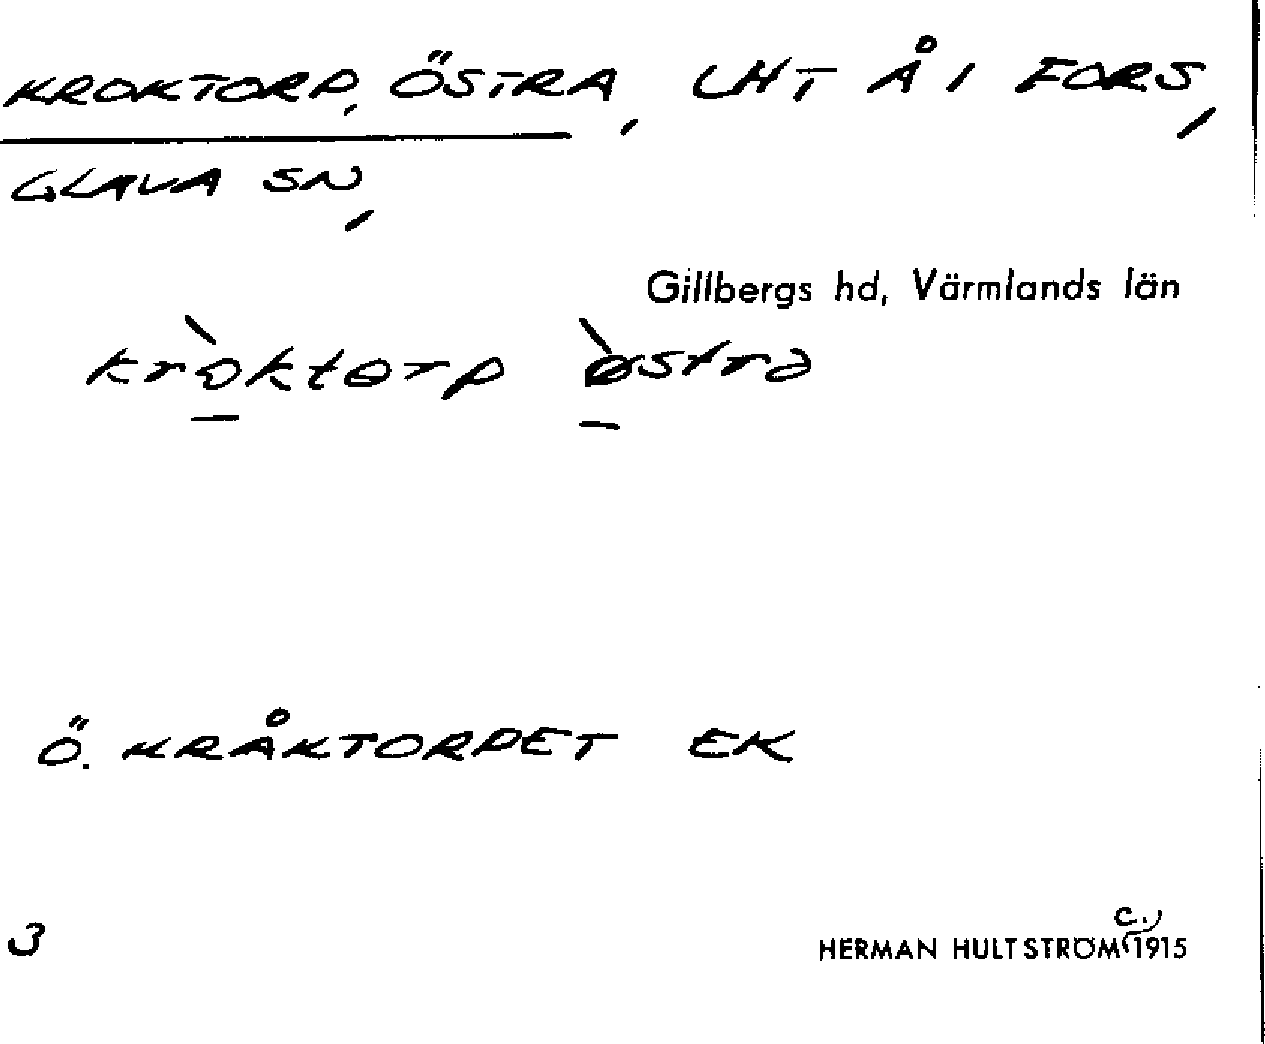 KROKTORP, ÖSTRA, LHT Å I FORS,
GLAVA SN,
Gillbergs hd, Värmlands län
kròktɵrp ø̀stra
Ö. KRÅKTORPET EK
3
HERMAN HULTSTRÖM (c.) 1915